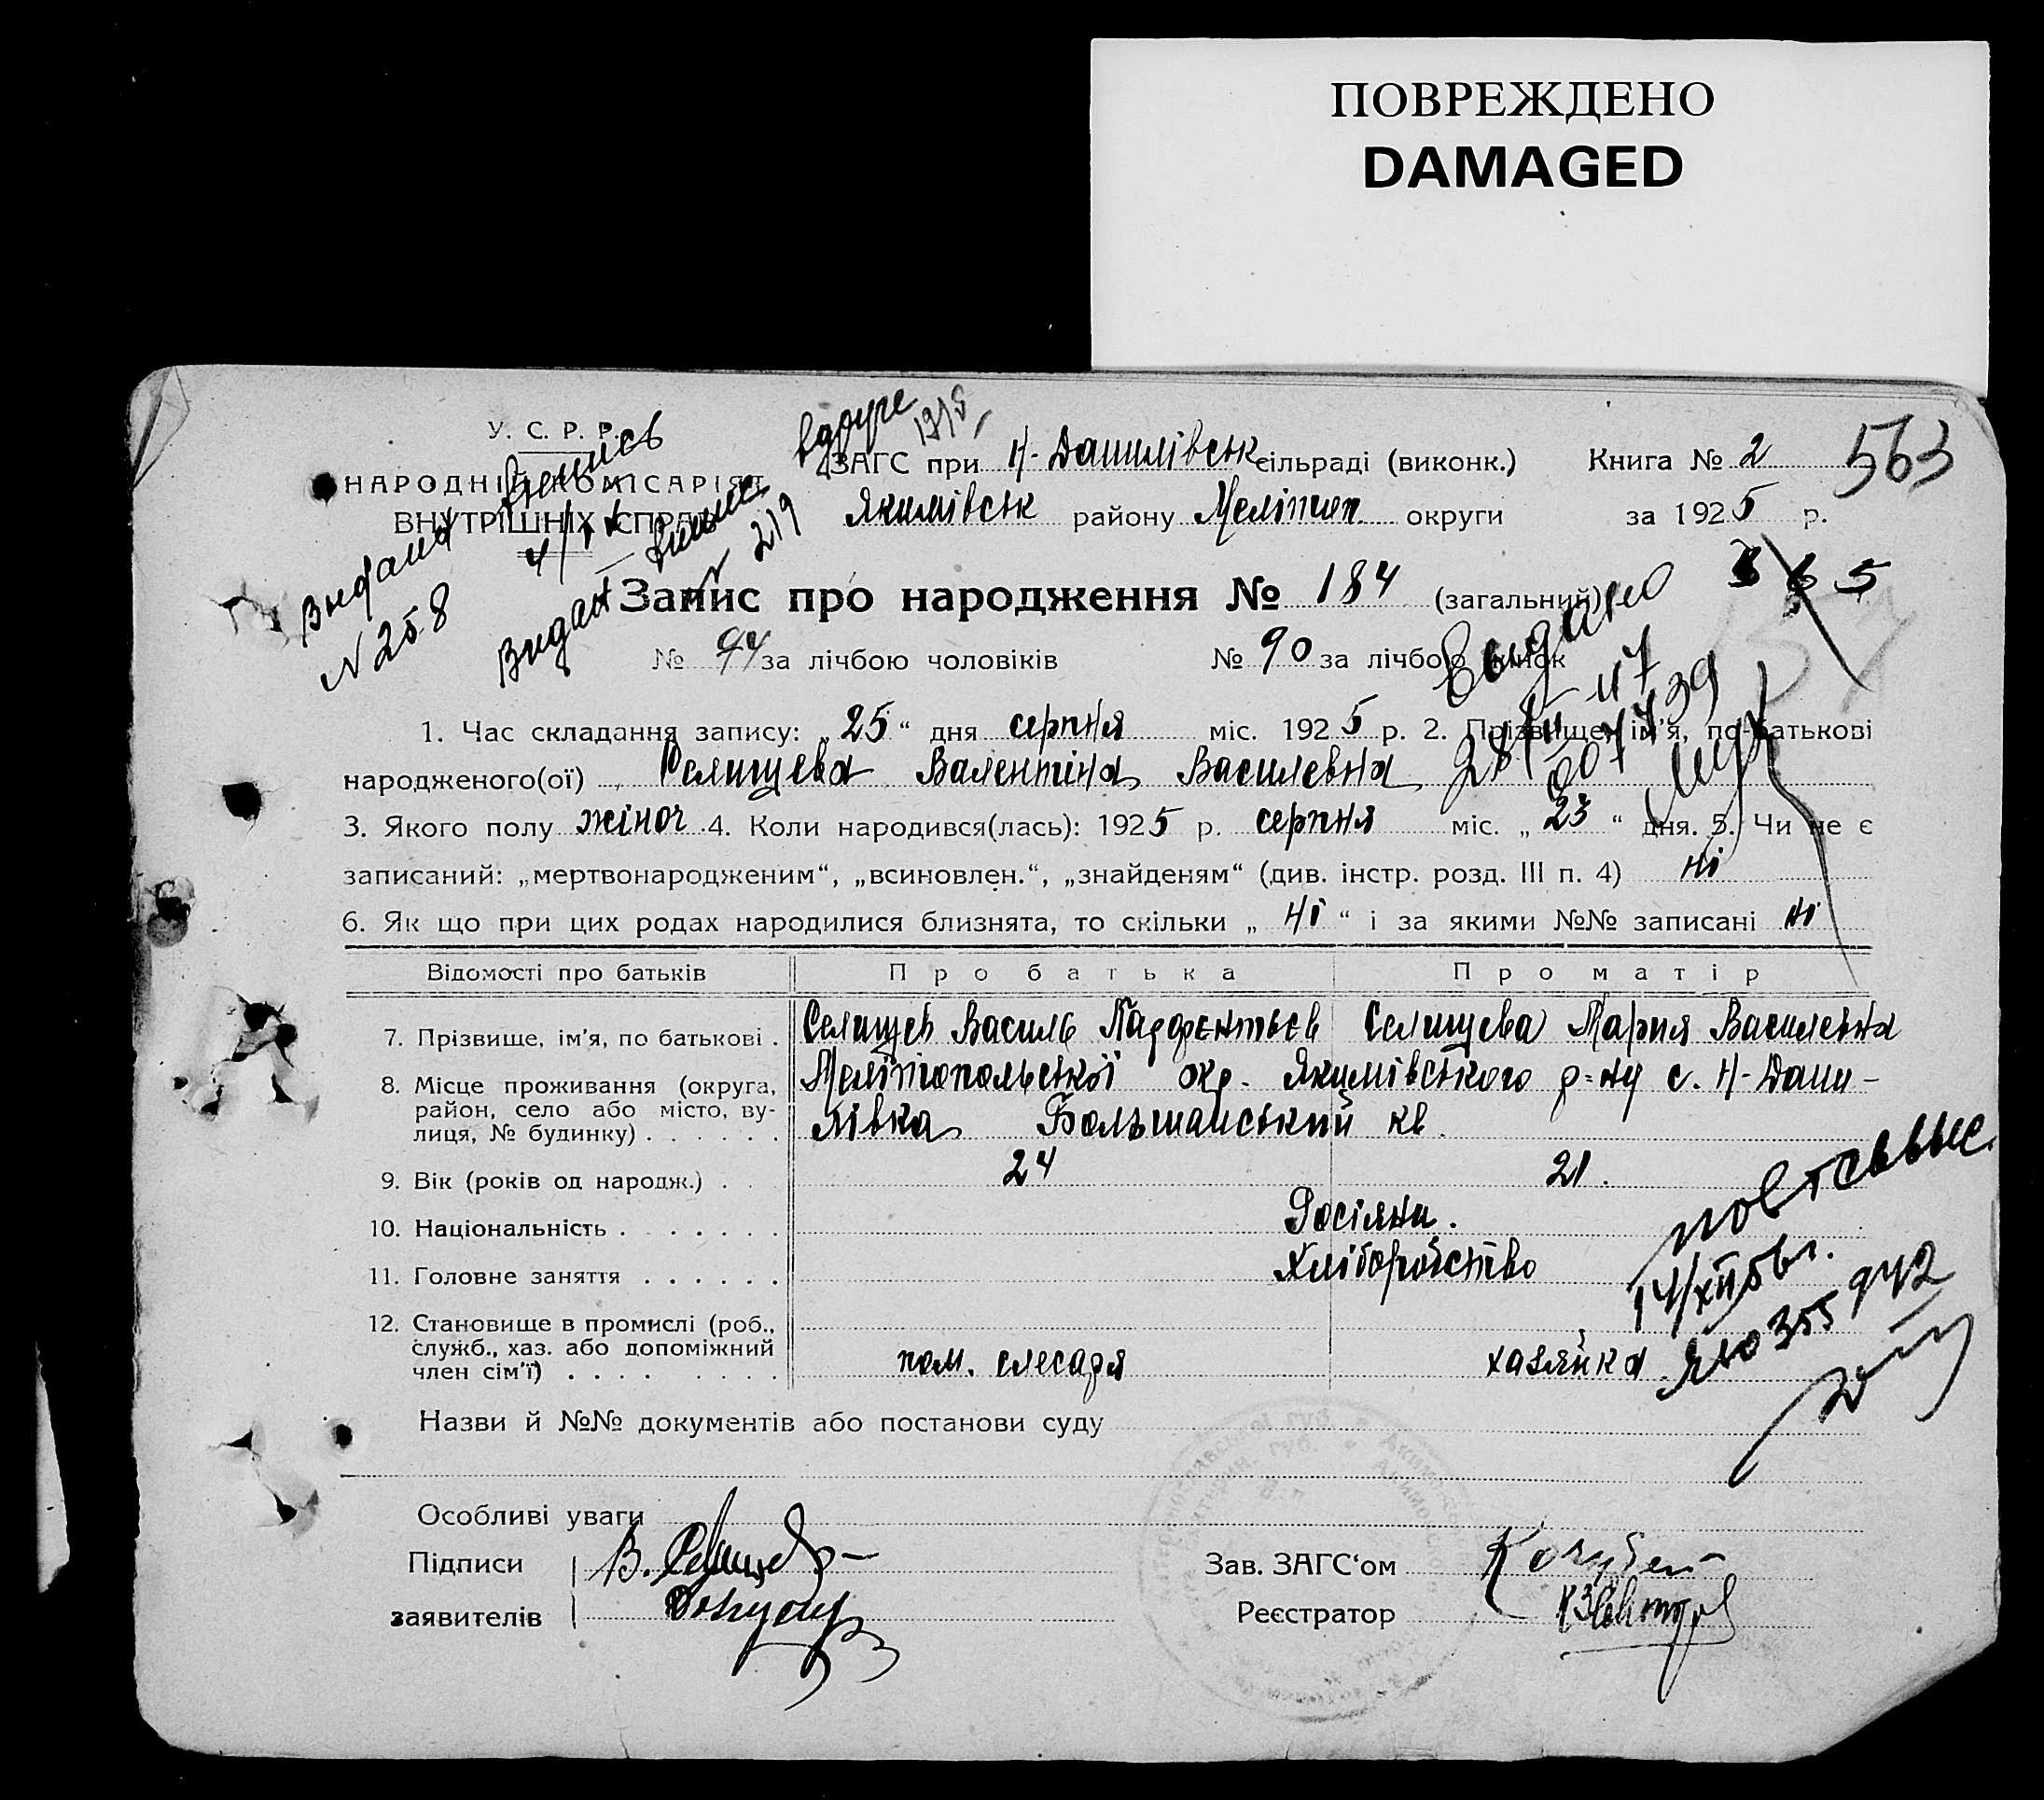 ПОВРЕЖДЕНО
DAMAGED
У. С. Р. Р.
НАРОДНІЙ КОМІСАРІЯТ
ВНУТРІШНІХ СПРАВ
вдруге
ЗАГС при Н-Данилівськ сільраді (виконк.) Книга № 2 563
Якимівськ району Мелітоп. округи за 1925 р.
Видана випись
N 258
Видан випис
N 219
Запис про народження № 184 (загальний)
№ за лічбою чоловіків № 90 за лічбою жінок
Видано
1. Час складання запису: „25“ дня серпня міс. 1925 р. 2. Прізвище, ім'я, по-батькові
народженого(ої) Селищева Валентіна Василевна
3. Якого полу жіноч 4. Коли народився(лась): 1925 р. серпня міс. „23“ дня. 5. Чи не є
записаний: „мертвонародженим“, „всиновлен.“, „знайденям“ (див. інстр. розд. III п. 4) ні
6. Як що при цих родах народилися близнята, то скільки „ні“ і за якими №№ записані ні
Відомості про батьків Про батька Про матір
7. Прізвище, ім'я, по батькові . Селищев Василь Парфентьєв Селищева Мария Василевна
8. Місце проживання (округа, район, село або місто, вулиця, № будинку) . . . . . . Меліпопольської окр. Якимівського р=ну с. Н-Дани-
лівка Большанський кв.
9. Вік (років од народж.) . . 24 21.
10. Національність . . . . . . Росіяни.
11. Головне заняття . . . . . . Хліборобство
12. Становище в промислі (роб., служб., хаз. або допоміжний член сім'ї) . . . . пом. слесаря хазяйка
повт свыс.
14/XII
355942
Назви й №№ документів або постанови суду
Особливі уваги
Підписи В. Селищев Зав. ЗАГС'ом Кочубей
заявителів Реєстратор